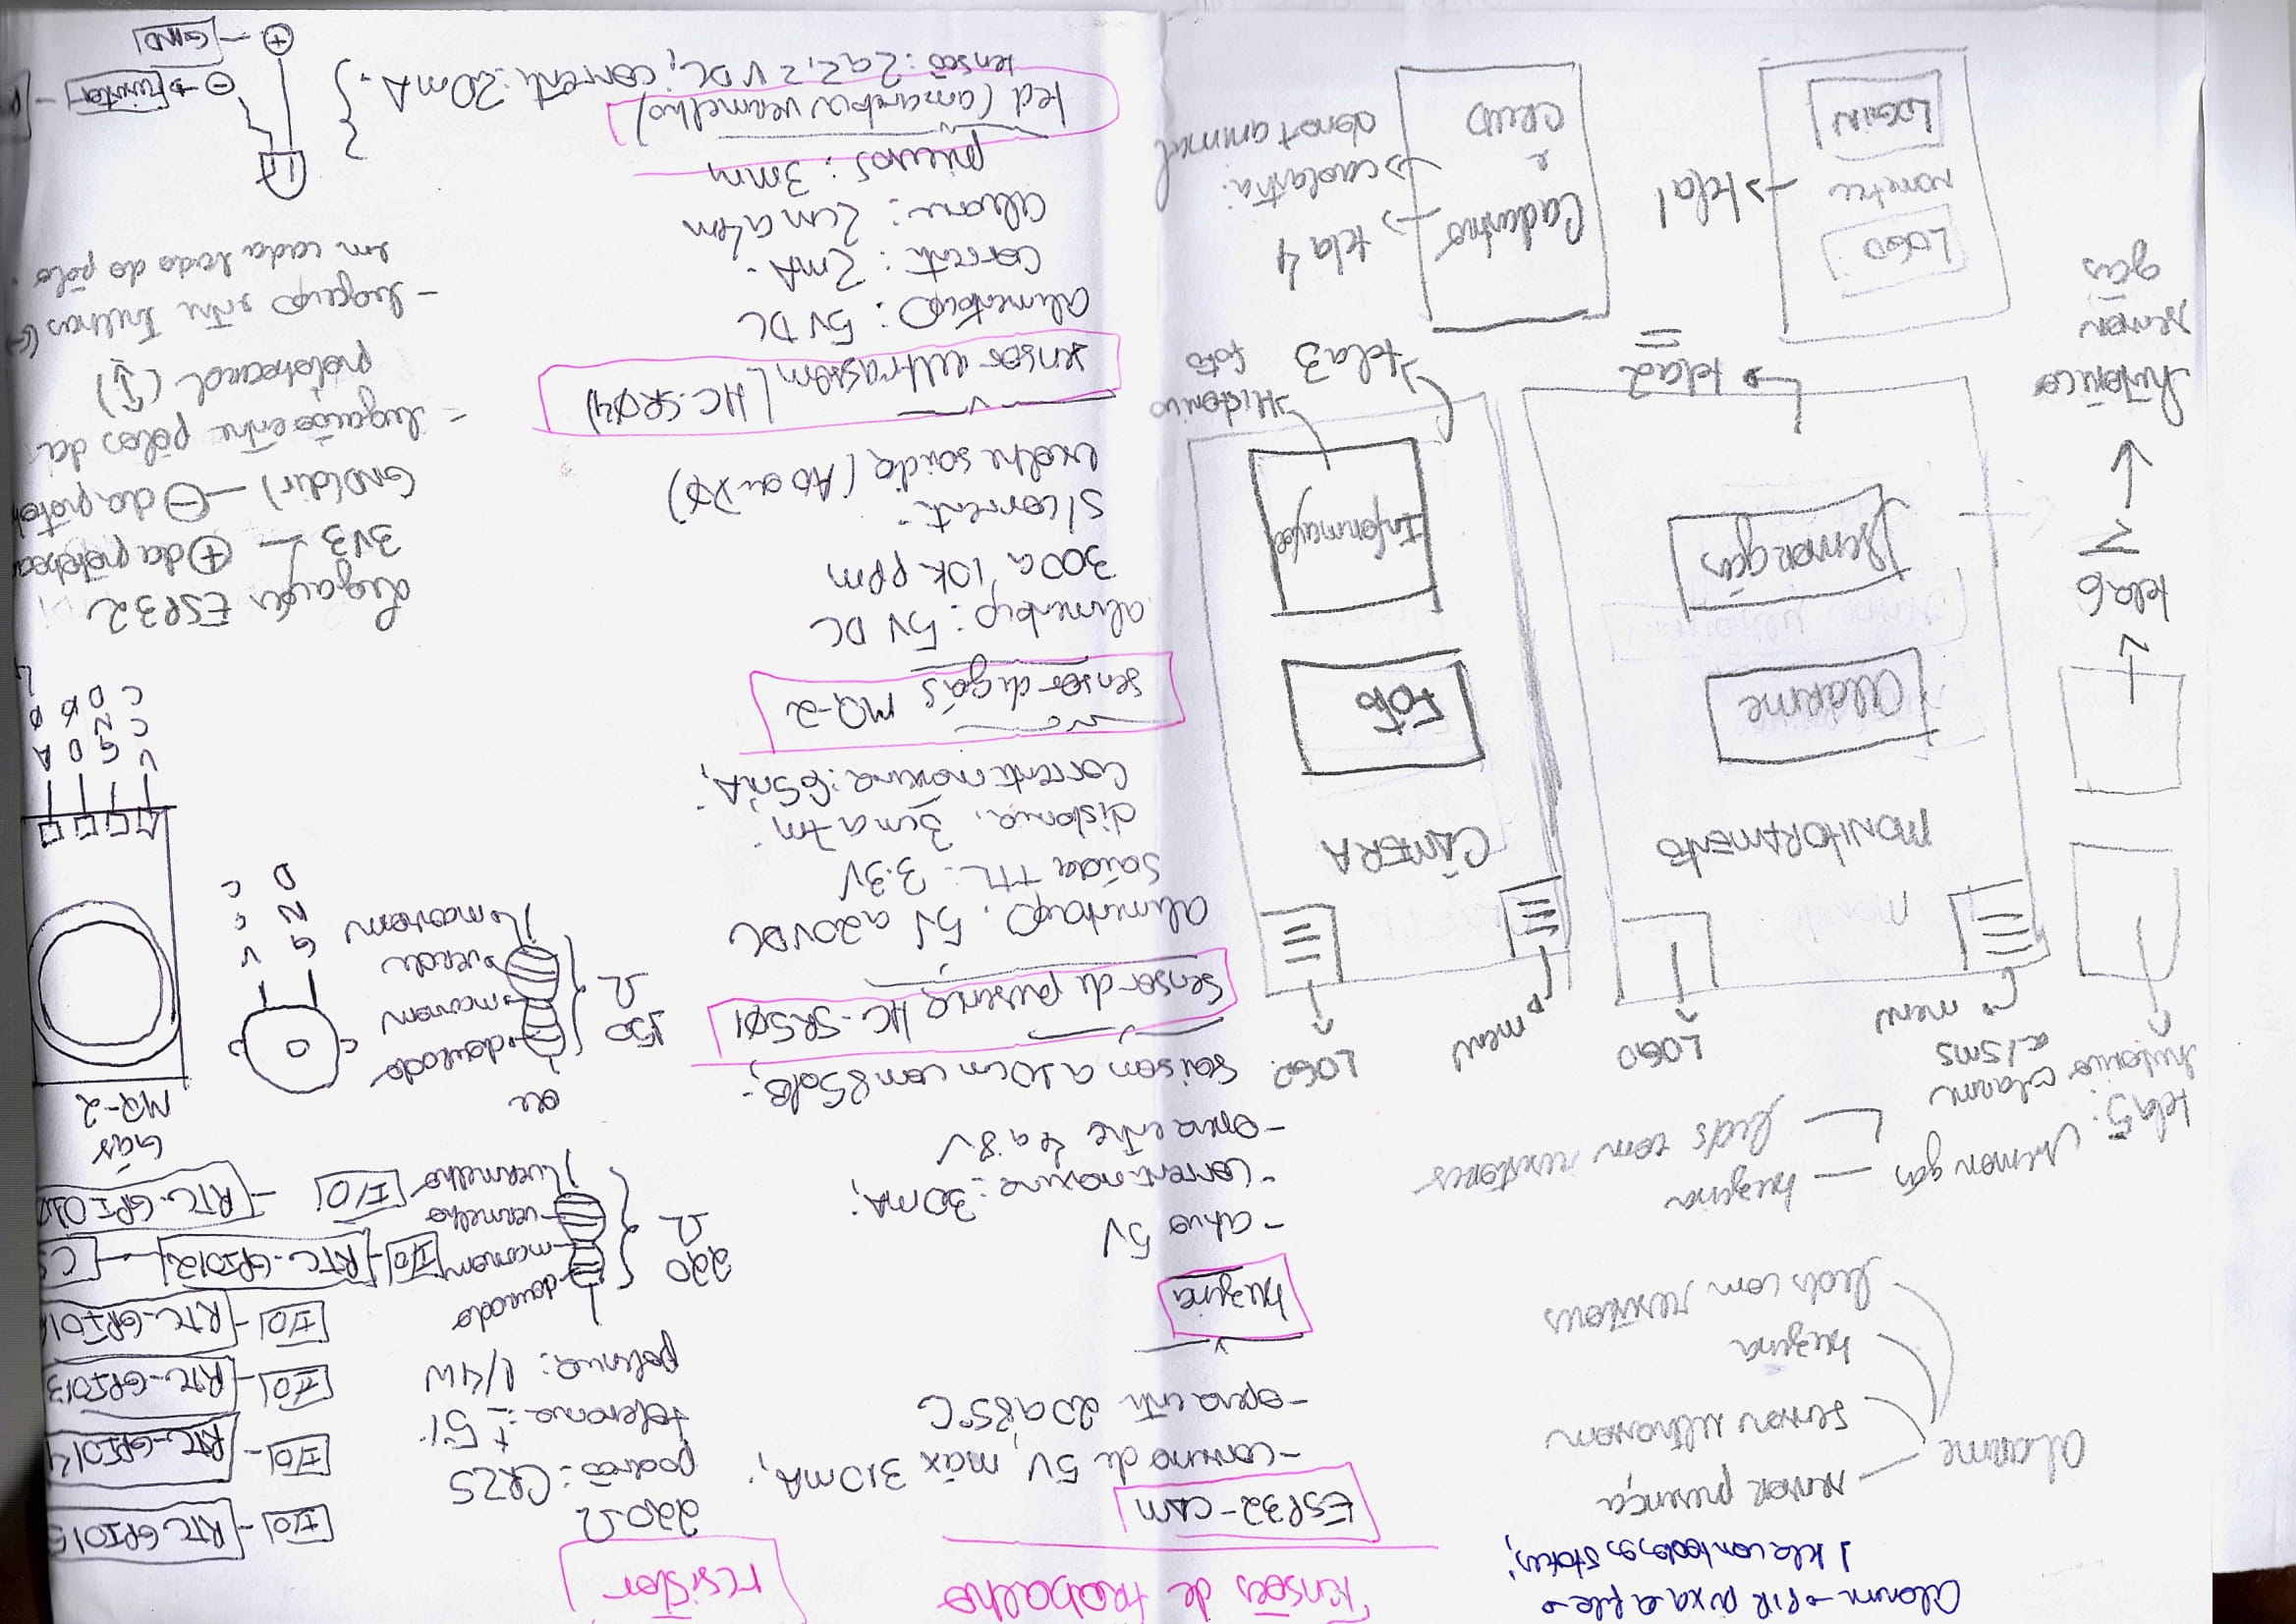 Alarm → PIR puxa a
1 tela com todos os status;
alarme
sensor presença
sensor ultrassom
buzina
leds com resistores
sensor gás
buzina
leds com resistores
tela 5:
histórico alarme
c/SMS
menu
LOGO
MONITORAMENTO
alarme
sensor gás
tela 2
menu
LOGO
CÂMERA
FOTO
Informações
tela 3
Histórico
foto
tela 6
histórico
sensor
gás
LOGO
LOGIN
tela 1
Cadastro
e
CRUD
tela 4
cadastra:
dono + animal
Tensões de trabalho
ESP32-CAM
- consumo de 5V, máx 310mA;
- opera entre 20 a 85°C
buzina
- ativo 5V
- corrente máxima: 30mA;
- opera entre 4 a 8V
sai som a 10cm com 85dB;
sensor de presença HC-SR5Ø1
alimentação: 5V a 20VDC
Saída TTL: 3.3V
distancia: 3cm a 7m;
Corrente máxima: 65mA;
sensor de gás MQ-2
alimentação: 5V DC
300 a 10k ppm
S/corrente
escolhe saída (A0 ou DØ)
sensor ultrassom (HC-SRØ4)
alimentação: 5V DC
Corrente: 2mA.
alcance: 2cm a 4m
precisão: 3mm
led (amarelo ou vermelho)
tensão: 2 a 2,2 VDC; corrente: 20mA.
resistor
220Ω
padrão: CR25
tolerancia: ± 5%
potencia: 1/4W
220
Ω
dourado
marrom
vermelho
vermelho
ou
150
Ω
dourado
marrom
verde
marrom
I/O - RTC GPIO15
I/O - RTC-GPIO14
I/O - RTC-GPIO13
I/O - RTC-GPIO1
I/O - RTC-GPIO12 - CS
I/O - RTC-GPIO10
GND
VCC
Gás
MQ-2
VCC
GND
DØ
AØ
Ligações ESP32
3V3 — ⊕ da protoboa
GND(dir) — ⊖ da protob
- ligação entre pólos da
protoboard (↕)
- ligação entre trilhas
em cada lado do pólo.
⊖ → resistor -
⊕ - GND